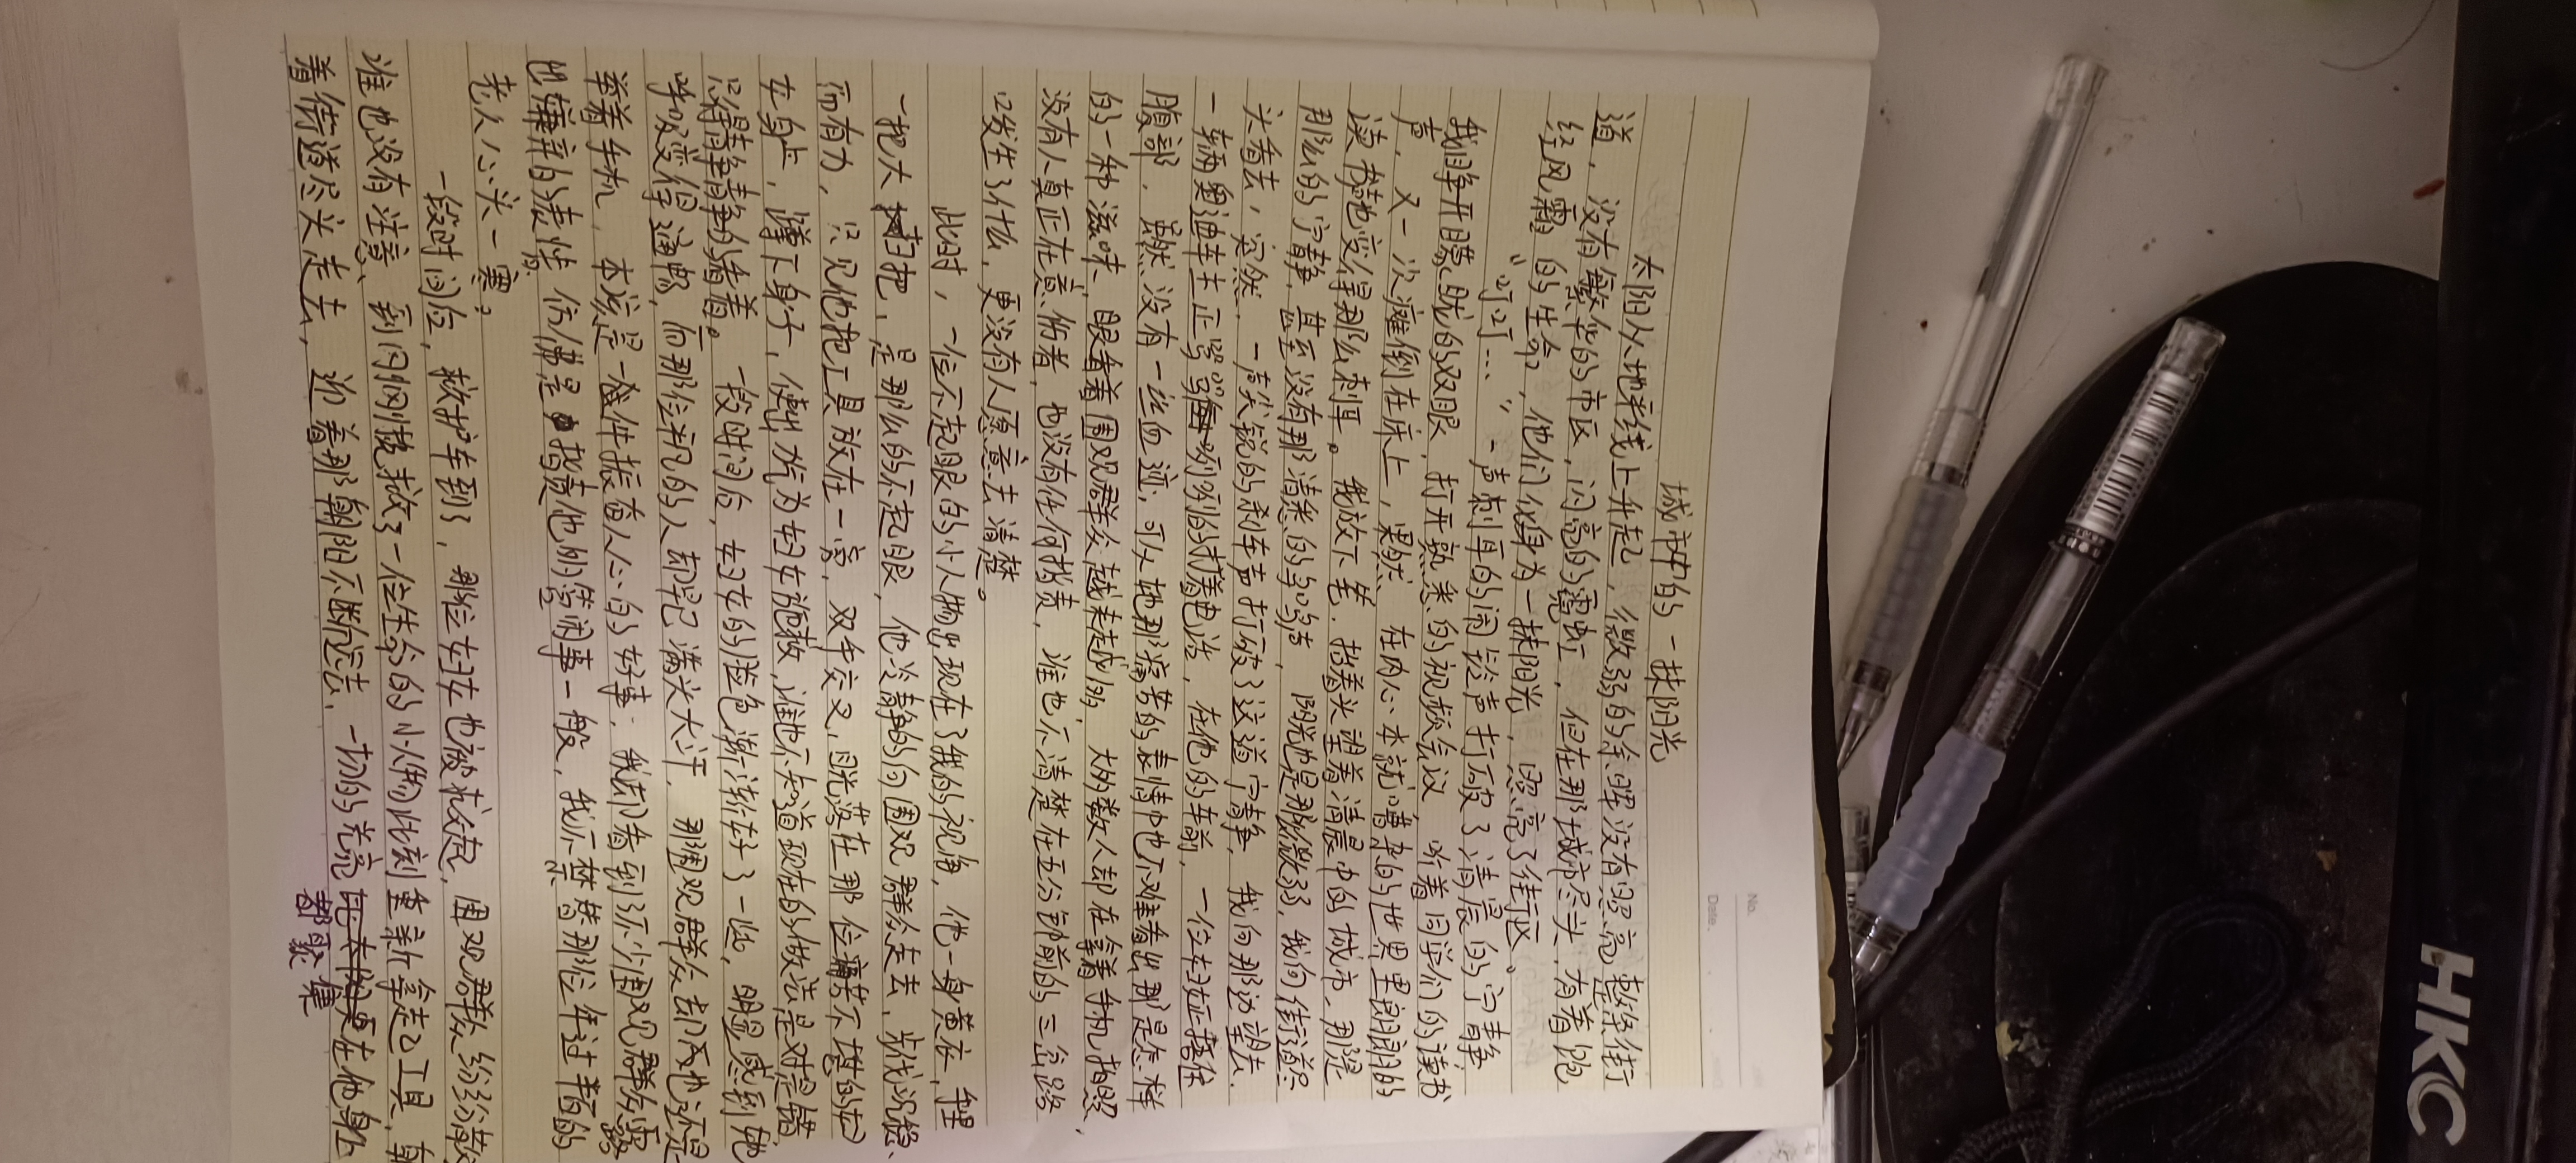 No.
Date.
城市中的一抹阳光
太阳从地平线上升起，微弱的余晖没有照亮整条街
道，没有繁华的市区，闪亮的霓虹，但在那城市尽头，有着饱
经风霜的生命，他们化身为一抹阳光，照亮了街区。
“叮叮…”一声刺耳的闹铃声打破了清晨的宁静，
我睁开朦胧的双眼，打开熟悉的视频会议，听着同学们的读书
声，又一次瘫倒在床上，果然，在内心本就嘈杂的世界里朗朗的
读书声也变得那么刺耳。我放下笔，抬着头望着清晨中的城市，那是
那么的宁静，甚至没有那清脆的鸟鸣声，阳光也是那微弱，我向街道尽
头看去，突然，一声尖锐的刹车声打破了这道宁静，我向那边望去，
一辆奥迪车主正骂骂咧咧的打着电话，在他的车前，一位妇女正捂住
腹部，虽然没有一丝血迹，可从她那痛苦的表情中也不难看出那是怎样
的一种滋味，眼看着围观群众越来越多，大多数人却在拿着手机拍照，
没有人真正在意伤者，也没有任何指责，谁也不清楚在五分钟前的三岔路
口发生了什么，更没有人愿意去清楚。
此时，一位不起眼的小人物出现在了我的视角，他一身黄衣，手里
一把大扫把，是那么的不起眼，他冷静的向围观群众走去，步伐沉稳
而有力，只见他把工具放在一旁，双手交叉，目光落在那位痛苦不堪的妇
女身上，蹲下身子，便出力为妇女施救，谁也不知道现在的做法是对是错，
只得静静的看着。一段时间后，妇女的脸色渐渐好了一些，明显感到她
呼吸变得通畅，而那位平凡的人却早已满头大汗，那围观群众却又也还是
举着手机，本该是一件振奋人心的好事，我却看到了不少围观群众露
出嫌弃的表情，仿佛是指责他的等闲事一般，我不禁替那位年过半百的
老人心头一寒。
一段时间后，救护车到了，那位妇女也被救起，围观群众纷纷散
谁也没有注意，到刚刚拯救了一位生命的小人物此刻重新拿起工具，朝
着街道尽头走去，迎着那朝阳不断远去，一切的光亮都聚集在他身上
HKC